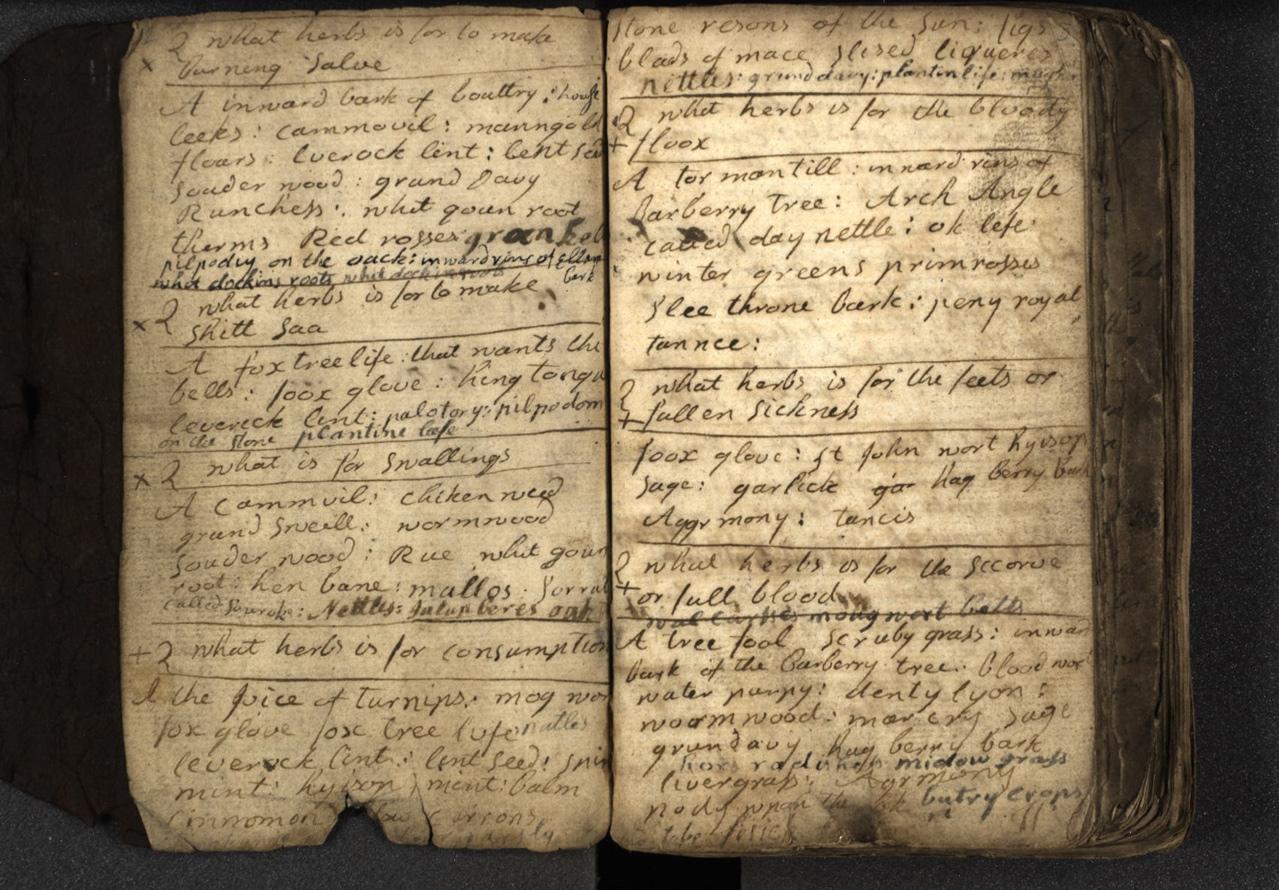 Q what herbs is for to make
burning Salve
A inward bark of bouttry: hous
leeks: cammovil: manngold
flours: leverock lint: lent
Souder wood: grund Davy
Runchess: whit goun root
therms Red rosses
pilpodoy on the oack: inward rins of ellern
whit dockins roots bark
Q what herbs is for to make
Shitt Saa
A fox tree life that wants the
bells: foox glove: king tongu
leverick lint: palotory: pilpodom
on the stone plantine lafe
Q what is for Swallings
A Cammvil: Chiken weed
grund Swell: wormwood
Souder wood: Rue whit goun
root: hen bane: mallos: Sorral
called Sourok: Nettls:
Q what herbs is for consumption
A the Juice of turnips: mog wor
fox glove fox tree life natles
leverock lint: lent Seed:
mint: hyison mint: balm
Cinnomon Currons
Stone resons of the Sun: figs
blads of mace Slised liqueres
nettles: grund davy: plantin life: mugh
Q what herbs is for the bloody
floox
A tormantill: inward rins of
Barberry tree: Arch Angle
called day nettle: ok lefe
winter greens primrosses
Slee throne bark: peny royal
tannce:
Q what herbs is for the feets or
fallen Sickness
foox glove: St John wort hyisop
Sage: garlick hag berry bark
Aggrmony: tancis
Q what herbs is for the Sccorve
or full blood
mougwort
A tree fool Scruby grass: inwar
bark of the Barberry tree: blood wor
water purpy: denty lyon:
woormwood: marcry Sage
grundavy hag berry bark
hors radish midow grass
livergrass: Agrmony
upon the ok butry crops